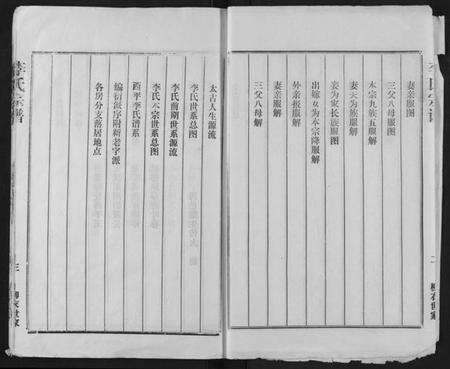 妻亲服图
三父八母服图
本宗九族五服解
妻夫为族服解
妾为家长族服图
出嫁女为本宗降服解
外亲报服解
妻亲服解
三父八母解
太古人生源流
李氏世系总图
李氏前期世系源流
李氏本宗世系总图
西平李氏谱系
编衍派序附新老字派
各房分支落居地点
李氏宗谱
三
柳衣世家